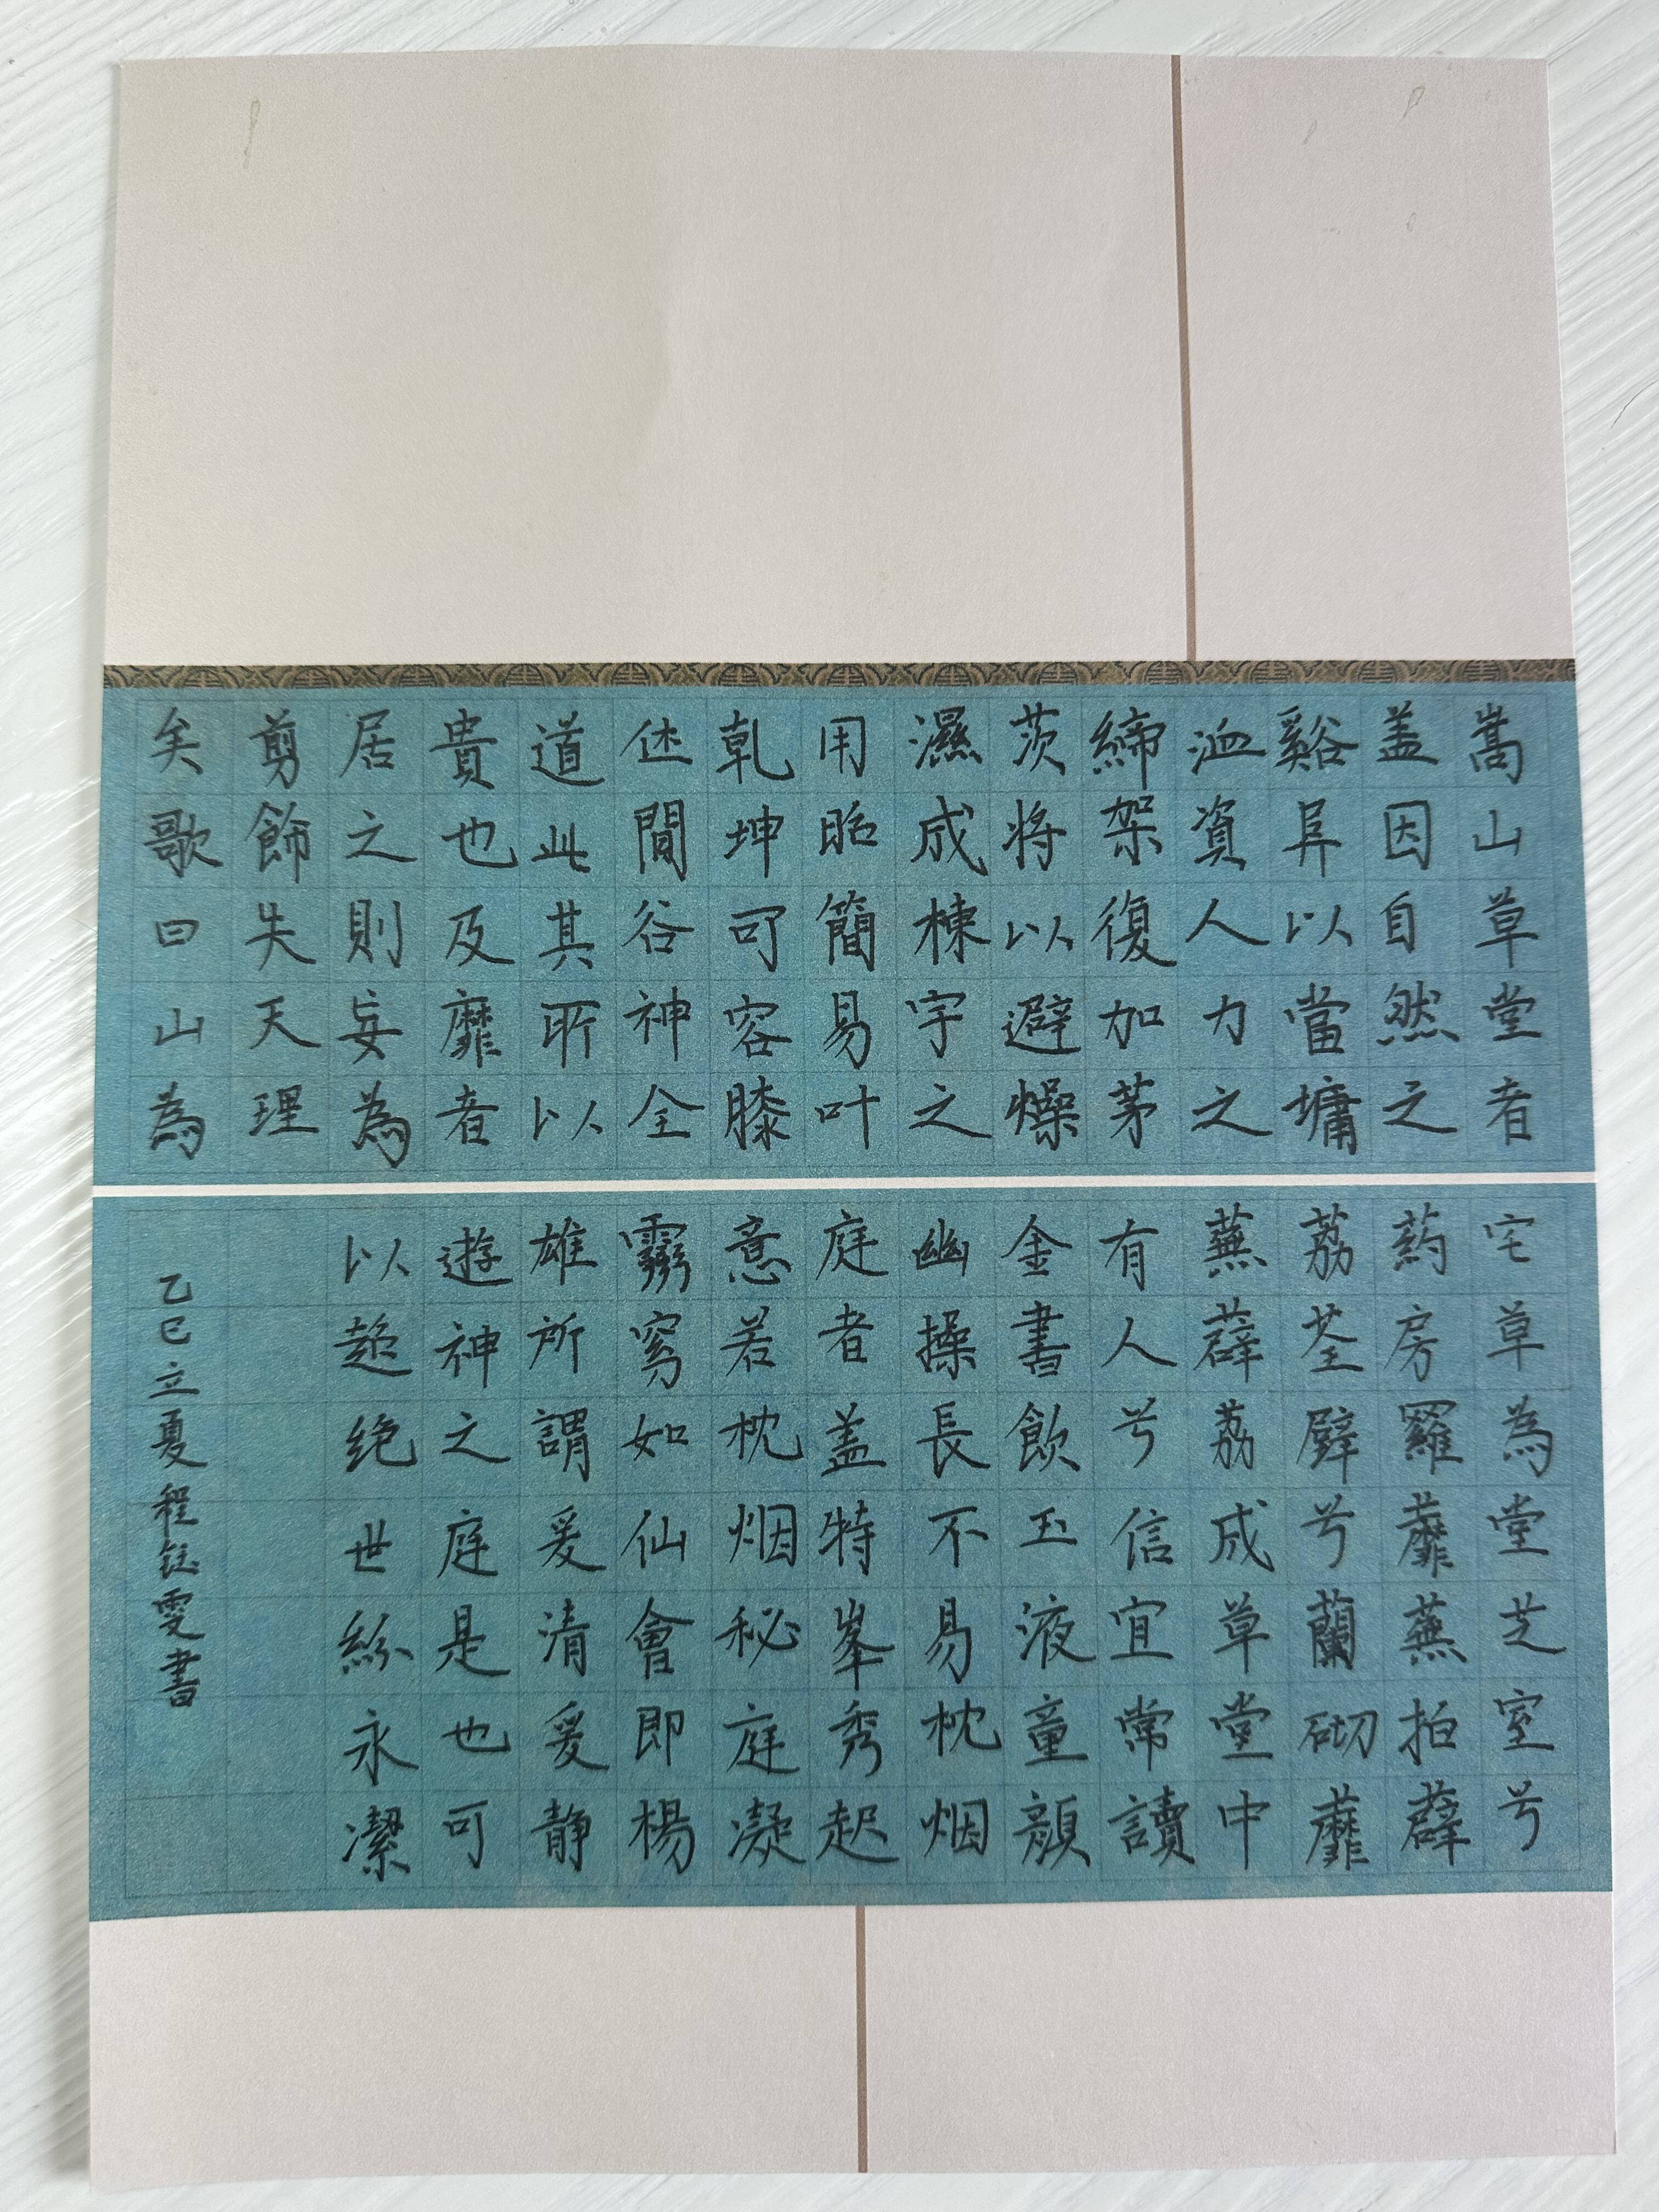 嵩山草堂者
盖因自然之
谿阜以當墉
洫資人力之
締架復加茅
茨将以避燥
濕成棟宇之
用昭簡易叶
乾坤可容膝
休閒谷神全
道此其所以
貴也及靡者
居之則妄為
剪餙失天理
矣歌曰山為
宅草為堂芝室兮
葯房羅蘼蕪拍薜
荔荃壁兮蘭砌蘼
蕪薜荔成草堂中
有人兮信宜常讀
金書飲玉液童顔
幽操長不易枕烟
庭者盖特峯秀起
意若枕烟秘庭凝
靈窅如仙會即楊
雄所謂爰清爰静
遊神之庭是也可
以超绝世紛永潔
乙巳立夏程钰雯書